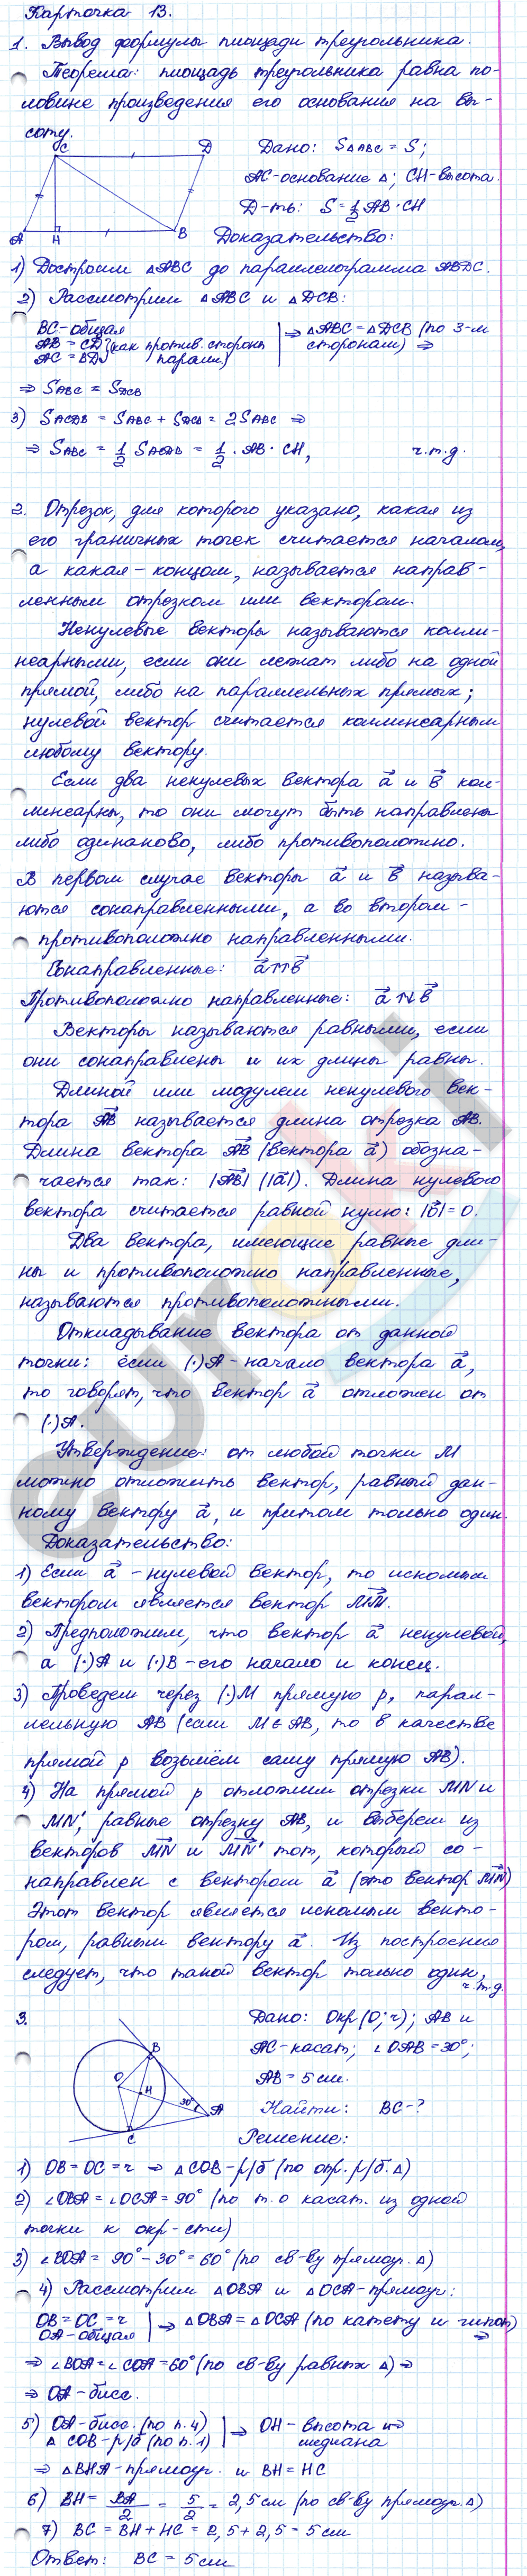 Карточка 13.
1. Вывод формулы площади треугольника.
Теорема: площадь треугольника равна по-
ловине произведения его основания на вы-
соту.
C D
A H B
Дано: S△ABC = S;
AC-основание △; CH-высота.
Д-ть: S = 1/2 AB · CH
Доказательство:
1) Достроим △ABC до параллелограмма ABDC.
2) Рассмотрим △ABC и △DCB:
BC-общая
AB = CD } (как против. стороны
AC = BD } паралл.)
⇒ △ABC = △DCB (по 3-м
сторонам) ⇒
⇒ SABC = SDCB
3) SACDB = SABC + SDCB = 2SABC ⇒
⇒ SABC = 1/2 SACDB = 1/2 · AB · CH, ч.т.д.
2. Отрезок, для которого указано, какая из
его граничных точек считается началом,
а какая - концом, называется направ-
ленным отрезком или вектором.
Ненулевые векторы называются колли-
неарными, если они лежат либо на одной
прямой, либо на параллельных прямых;
нулевой вектор считается коллинеарным
любому вектору.
Если два ненулевых вектора a⃗ и b⃗ кол-
линеарны, то они могут быть направлены
либо одинаково, либо противоположно.
В первом случае векторы a⃗ и b⃗ называ-
ются сонаправленными, а во втором -
противоположно направленными.
Сонаправленные: a⃗ ↑↑ b⃗
Противоположно направленные: a⃗ ↑↓ b⃗
Векторы называются равными, если
они сонаправлены и их длины равны.
Длиной или модулем ненулевого век-
тора AB⃗ называется длина отрезка AB.
Длина вектора AB⃗ (вектора a⃗) обозна-
чается так: |AB⃗| (|a⃗|). Длина нулевого
вектора считается равной нулю: |0⃗| = 0.
Два вектора, имеющие равные дли-
ны и противоположно направленные,
называются противоположными.
Откладывание вектора от данной
точки: если (·)A - начало вектора a⃗,
то говорят, что вектор a⃗ отложен от
(·)A.
Утверждение: от любой точки M
можно отложить вектор, равный дан-
ному вектору a⃗, и притом только один.
Доказательство:
1) Если a⃗ - нулевой вектор, то искомым
вектором является вектор MM⃗.
2) Предположим, что вектор a⃗ ненулевой,
а (·)A и (·)B - его начало и конец.
3) Проведем через (·)M прямую p, парал-
лельную AB (если M ∈ AB, то в качестве
прямой p возьмём саму прямую AB).
4) На прямой p отложим отрезки MN и
MN', равные отрезку AB, и выберем из
векторов MN⃗ и MN'⃗ тот, который со-
направлен с вектором a⃗ (это вектор MN⃗)
Этот вектор является искомым векто-
ром, равным вектору a⃗. Из построения
следует, что такой вектор только один,
ч.т.д.
3.
B
O H 30° A
C
Дано: Окр (O; r); AB и
AC-касат; ∠OAB = 30°;
AB = 5 см.
Найти: BC-?
Решение:
1) OB = OC = r ⇒ △COB - р/б (по опр. р/б. △)
2) ∠OBA = ∠OCA = 90° (по т. о касат. из одной
точки к окр-сти)
3) ∠BOA = 90° - 30° = 60° (по св-ву прямоуг. △)
4) Рассмотрим △OBA и △OCA-прямоуг:
OB = OC = r
OA - общая
⇒ △OBA = △OCA (по катету и гипот)
⇒
⇒ ∠BOA = ∠COA = 60° (по св-ву равных △) ⇒
⇒ OA - бисс.
5) OA-бисс. (по п. 4)
△ COB - р/б (по п. 1)
⇒ OH - высота и
медиана
⇒
⇒ △BHA - прямоуг. и BH = HC
6) BH = BA/2 = 5/2 = 2,5 см (по св-ву прямоуг. △)
7) BC = BH + HC = 2,5 + 2,5 = 5 см
Ответ: BC = 5 см
euroki